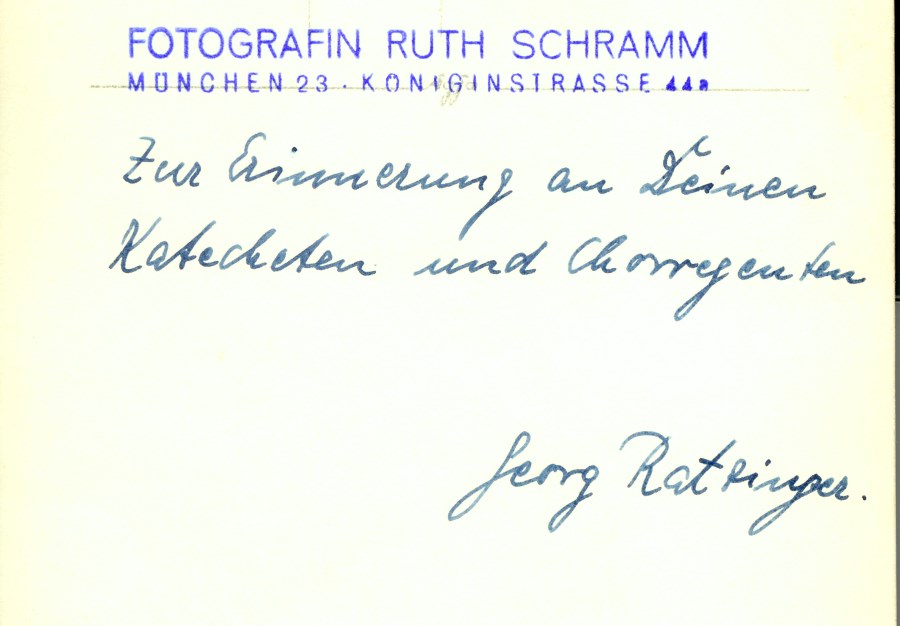 FOTOGRAFIN RUTH SCHRAMM
MÜNCHEN 23 · KÖNIGINSTRASSE 44a
Zur Erinnerung an Deinen
Katecheten und Chorregenten
Georg Ratzinger.